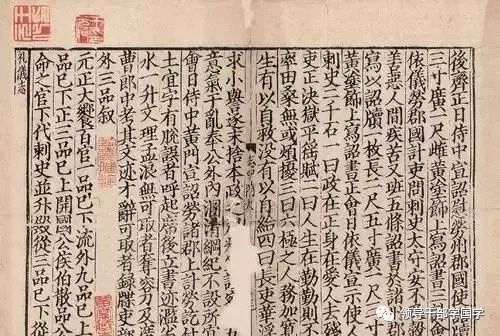 後齊正日侍中宣詔慰勞州郡國使
三寸廣一尺雌黃塗飾上寫詔書
依儀勞郡國計吏問刺史太守安不
善惡人間疾苦又班五條詔書
寫以詔牘一枚長二尺五寸廣一尺
黃塗飾上寫詔書正會日依儀宣示使人
史二千石一曰政在正身在愛人去殘
吏正決獄平徭賦二曰人生在勤勤則
率田桑無或煩擾三曰六極之人務加
生有以自救沒有以自給四曰長吏華浮
求小譽逐末捨本政
意氣干亂奉公外內溷淆綱紀不設所
會日侍中黃門宣詔勞諸郡上計
土宜字有脫誤者呼起席後立書迹濫
水一升文理孟浪無可取者奪容刀及
曹郎中考其文迹才辭可取者錄牒吏
外三品敘
元正大饗百官一品已下流外九品已上
品已下正三品已上開國公侯伯散品公
命之官下代刺史並升殿從三品已
礼儀志
领导干部学国学